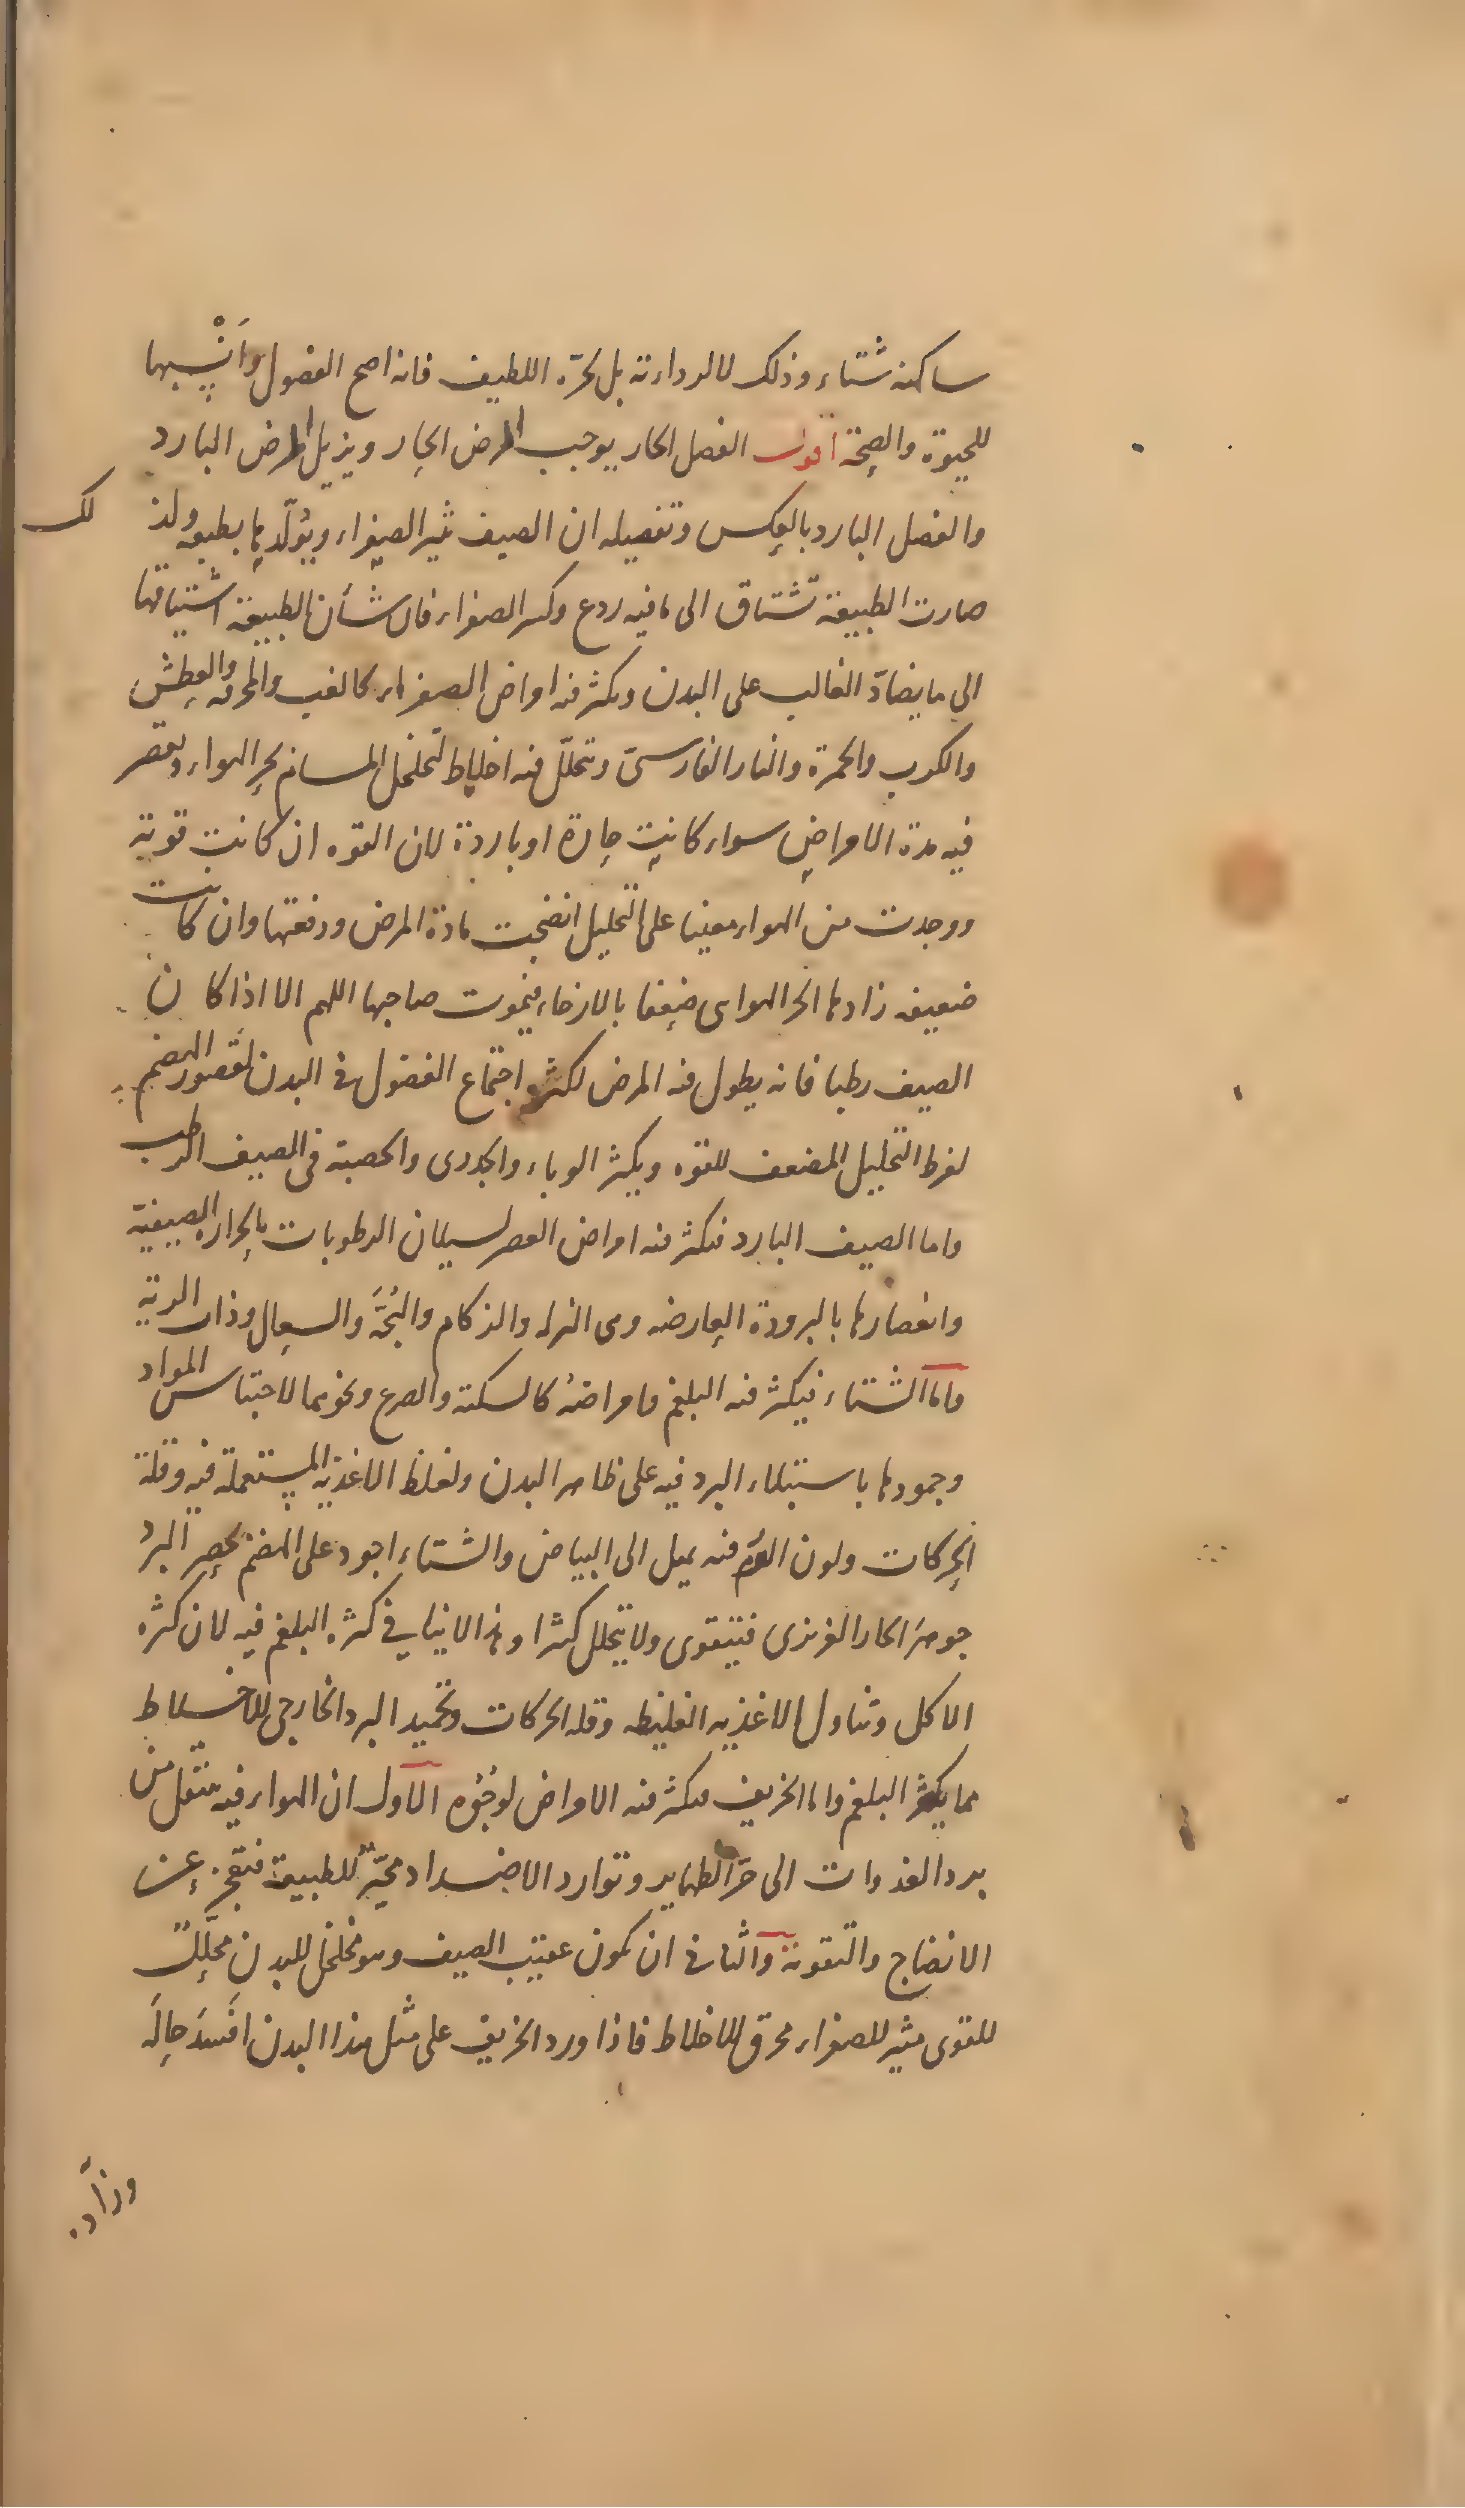 ساكنه شتاء وذلك لا لرداءته بل لحرّه اللطيف فانه اصح الفصول وانسبها
للحيوة والصحة اقول الفصل الحار يوجب المرض الحار ويزيل المرض البارد
والفصل البارد بالعكس وتفصيله ان الصيف يثير الصفراء ويولّدها بطبعه ولذلك
صارت الطبيعة تشتاق الى ما فيه ردع وكسر الصفراء فان شأن الطبيعة اشتياقها
الى ما يضادّ الغالب على البدن ويكثر فيه امراض الصفراء كالغب والمحرقه والعطش
والكرب والحمرة والنار الفارسىّ وتتحلّل فيه اخلاط لتخلخل المسام بحر الهواء ويقصر
فيه مدة الامراض سواء كانت حارة او باردة لان القوه ان كانت قوية
ووجدت من الهواء معينا على التحليل انضجت مادة المرض ودفعتها وان كانت
ضعيفه زادها الحر الهوائى ضعفا بالارخاء فيموت صاحبها اللهم الا اذا كان
الصيف رطبا فانه يطول فيه المرض لكثرة اجتماع الفضول فى البدن لقصور الهضم
لفرط التحليل المضعف للقوه ويكثر الوباء والجدرى والحصبة فى الصيف الرطب
واما الصيف البارد فيكثر فيه امراض العصر لسيلان الرطوبات بالحرارة الصيفية
وانعصارها بالبرودة العارضه وهى النزله والزكام والبُحَّة والسعال وذات الرية
واما الشتاء فيكثر فيه البلغم وامراضهُ كالسكتة والصرع ونحوهما لاحتباس المواد
وجمودها باستيلاء البرد فيه على ظاهر البدن ولغلظ الاغذية المستعملة فيه وقلة
الحركات ولون الدم فيه يميل الى البياض والشتاء اجود على الهضم لحصر البرد
جوهر الحار الغريزى فيتقوى ولا يتحلل كثيرا وهذا لا ينافى كثرة البلغم فيه لان كثره
الاكل وتناول الاغذيه الغليظه وقله الحركات وتجميد البرد الخارجى للاخلاط
مما يكثر البلغم واما الخريف فيكثر فيه الامراض لوجُوْه الاول ان الهواء فيه ينتقل من
برد الغدوات الى حرّ الظهاير وتوارد الاضداد محيّرٌ للطبيعة فتعجز عن
الانضاج والتقوية والثانى ان يكون عقيب الصيف وهو مخلخل للبدن محلّلٌ
للقوى مثير للصفراء محرق للاخلاط فاذا ورد الخريف على مثل هذا البدن افسَدَ حالَه
وزاد